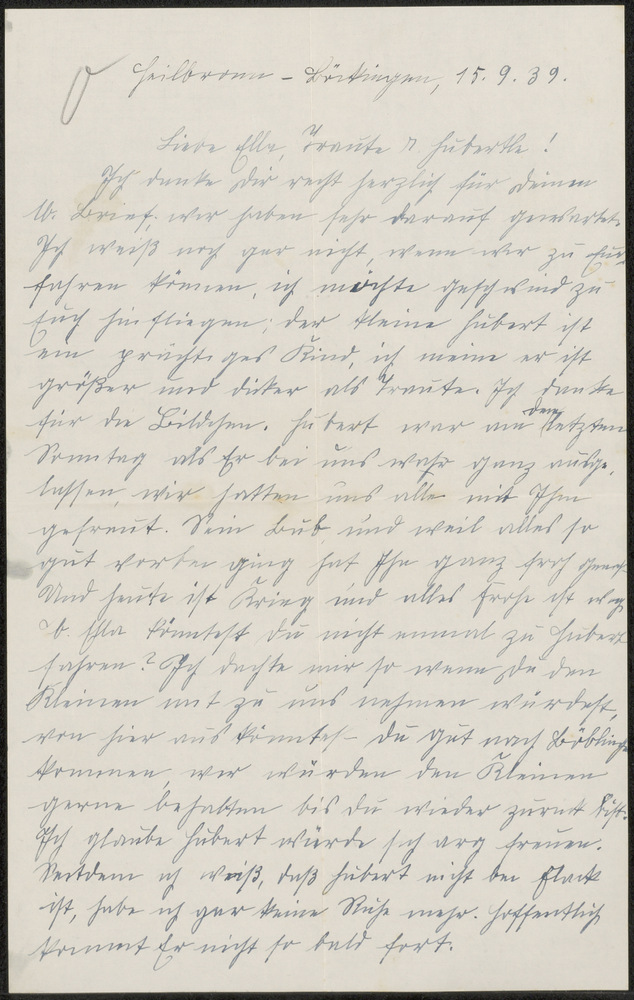 Heilbronn - Böckingen, 15.9.39.
Liebe Ella, Traute u Hubertle!
Ich danke Dir recht herzlich für Deinen
lb. Brief. wir haben sehr darauf gewartet.
Ich weiß noch gar nicht, wenn wir zu Euch
fahren können, ich möchte geschwind zu
Euch hinfliegen; der kleine Hubert ist
ein prächtiges Kind, ich meine er ist
größer und dicker als Traute. Ich danke
für die Bildchen. Hubert war am den letzten
Sonntag als Er bei uns wahr ganz ausge,
lassen, wir hatten uns alle mit Ihm
gefreut. Sein Bub, und weil alles so
gut vorbei ging hat Ihn ganz froh
Und heute ist Krieg und alles Frohe ist weg
lb. Ella könntest Du nicht einmal zu Hubert
fahren? Ich dachte mir so wenn Du den
Kleinen mit zu uns nehmen würdest,
von hier aus könntest Du gut nach Böblingen
kommen, wir würden den Kleinen
gerne behalten bis Du wieder zurück bist.
Ich glaube Hubert würde sich arg freuen.
Seitdem ich weiß, daß Hubert nicht bei Flack
ist, habe ich gar keine Ruhe mehr. Hoffentlich
kommt Er nicht so bald fort.